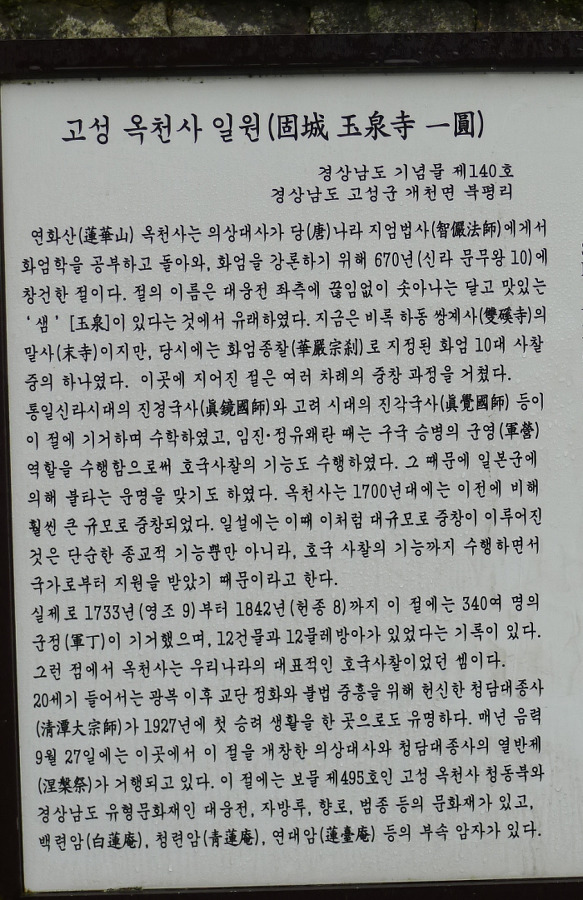 고성 옥천사 일원(固城 玉泉寺 一圓)
경상남도 기념물 제140호
경상남도 고성군 개천면 북평리
연화산(蓮華山) 옥천사는 의상대사가 당(唐)나라 지엄법사(智儼法師)에게서
화엄학을 공부하고 돌아와, 화엄을 강론하기 위해 670년(신라 문무왕 10)에
창건한 절이다. 절의 이름은 대웅전 좌측에 끊임없이 솟아나는 달고 맛있는
‘샘’[玉泉]이 있다는 것에서 유래하였다. 지금은 비록 하동 쌍계사(雙磎寺)의
말사(末寺)이지만, 당시에는 화엄종찰(華嚴宗刹)로 지정된 화엄 10대 사찰
중의 하나였다. 이곳에 지어진 절은 여러 차례의 중창 과정을 거쳤다.
통일신라시대의 진경국사(眞鏡國師)와 고려 시대의 진각국사(眞覺國師) 등이
이 절에 기거하며 수학하였고, 임진·정유왜란 때는 구국 승병의 군영(軍營)
역할을 수행함으로써 호국사찰의 기능도 수행하였다. 그 때문에 일본군에
의해 불타는 운명을 맞기도 하였다. 옥천사는 1700년대에는 이전에 비해
훨씬 큰 규모로 중창되었다. 일설에는 이때 이처럼 대규모로 중창이 이루어진
것은 단순한 종교적 기능뿐만 아니라, 호국 사찰의 기능까지 수행하면서
국가로부터 지원을 받았기 때문이라고 한다.
실제로 1733년(영조 9)부터 1842년(헌종 8)까지 이 절에는 340여 명의
군정(軍丁)이 기거했으며, 12건물과 12물레방아가 있었다는 기록이 있다.
그런 점에서 옥천사는 우리나라의 대표적인 호국사찰이었던 셈이다.
20세기 들어서는 광복 이후 교단 정화와 불법 중흥을 위해 헌신한 청담대종사
(清潭大宗師)가 1927년에 첫 승려 생활을 한 곳으로도 유명하다. 매년 음력
9월 27일에는 이곳에서 이 절을 개창한 의상대사와 청담대종사의 열반제
(涅槃祭)가 거행되고 있다. 이 절에는 보물 제495호인 고성 옥천사 청동북와
경상남도 유형문화재인 대웅전, 자방루, 향로, 범종 등의 문화재가 있고,
백련암(白蓮庵), 청련암(靑蓮庵), 연대암(蓮臺庵) 등의 부속 암자가 있다.